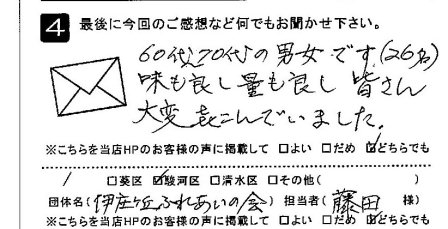 4 最後に今回のご感想など何でもお聞かせ下さい。
60代70代の男女です。(26名)
味も良し量も良し 皆さん
大変喜こんでいました。
※こちらを当店HPのお客様の声に掲載して □よい □だめ ☑どちらでも
□葵区 ☑駿河区 □清水区 □その他( )
団体名(伊庄丘ふれあいの会) 担当者(藤田 様)
※こちらを当店HPのお客様の声に掲載して □よい □だめ ☑どちらでも